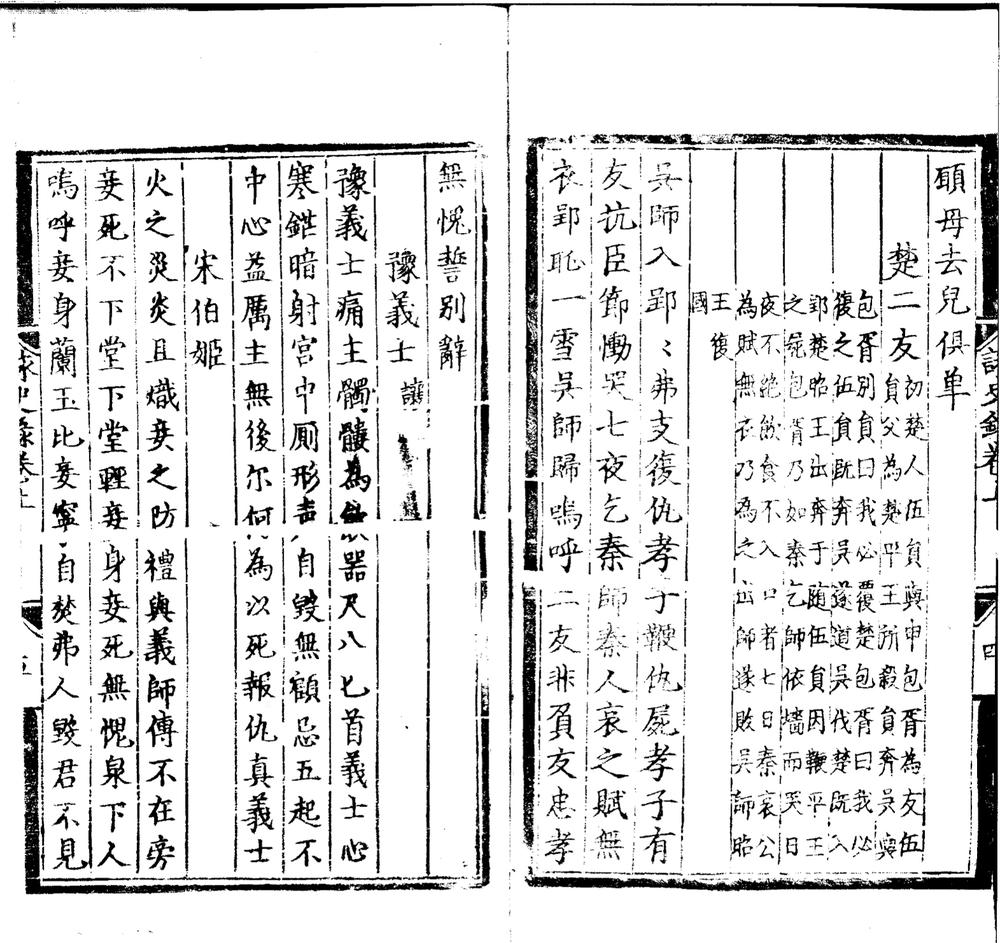 頋母去兒俱单
楚二友
初楚人伍員與申包胥為友伍
員父為楚平王所殺員奔吳與
包胥別員曰我必覆楚包胥曰我必
復之伍員既奔吳遂道吳伐楚既入
郢楚昭王出奔于随伍員因鞭平王
之屍包胥乃如秦乞師依墻而哭日
夜不絶飲食不入口者七日秦哀公
為賦無衣乃為之出師遂敗吳師昭
王復
國
吳師入郢〻弗支復仇孝子鞭仇屍孝子有
友抗臣節慟哭七夜乞秦師秦人哀之賦無
衣郢恥一雪吳師歸嗚呼二友非負友忠孝
四
無愧誓別辭
豫義士 讓
豫義士痛主髑髏為飲器尺八匕首義士心
寒鋩暗射宮中厠形声自毀無顧忌五起不
中心益厲主無後尔何為以死報仇真義士
宋伯姬
火之災炎且熾妾之防禮與義師傅不在旁
妾死不下堂下堂輕妾身妾死無愧泉下人
嗚呼妾身蘭玉比妾寧自焚弗人毀君不見
五